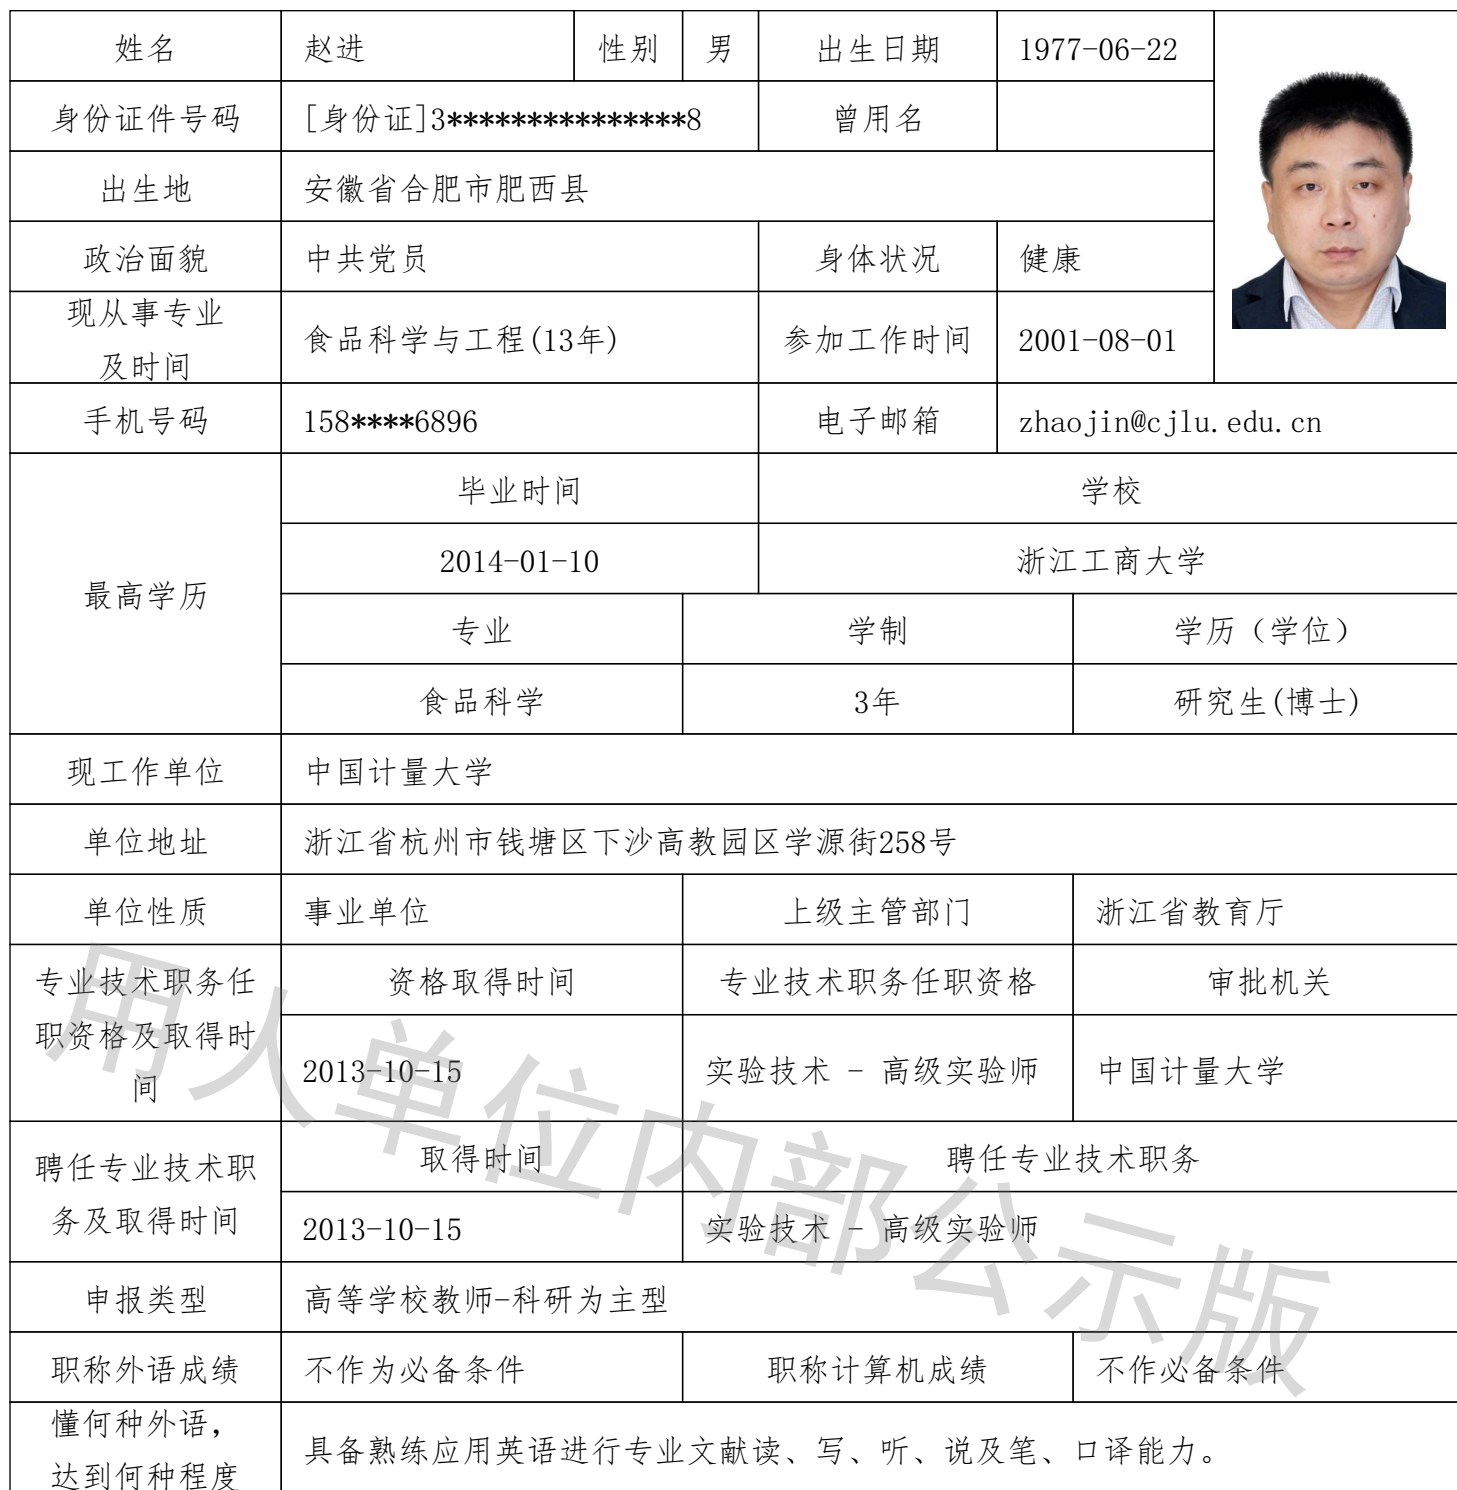 姓名 赵进 性别 男 出生日期 1977-06-22
身份证件号码 [身份证]3***************8 曾用名
出生地 安徽省合肥市肥西县
政治面貌 中共党员 身体状况 健康
现从事专业
及时间 食品科学与工程(13年) 参加工作时间 2001-08-01
手机号码 158****6896 电子邮箱 zhaojin@cjlu.edu.cn
最高学历
毕业时间 学校
2014-01-10 浙江工商大学
专业 学制 学历（学位）
食品科学 3年 研究生(博士)
现工作单位 中国计量大学
单位地址 浙江省杭州市钱塘区下沙高教园区学源街258号
单位性质 事业单位 上级主管部门 浙江省教育厅
专业技术职务任
职资格及取得时
间
资格取得时间 专业技术职务任职资格 审批机关
2013-10-15 实验技术 - 高级实验师 中国计量大学
聘任专业技术职
务及取得时间
取得时间 聘任专业技术职务
2013-10-15 实验技术 - 高级实验师
申报类型 高等学校教师-科研为主型
职称外语成绩 不作为必备条件 职称计算机成绩 不作必备条件
懂何种外语，
达到何种程度 具备熟练应用英语进行专业文献读、写、听、说及笔、口译能力。
用人单位内部公示版